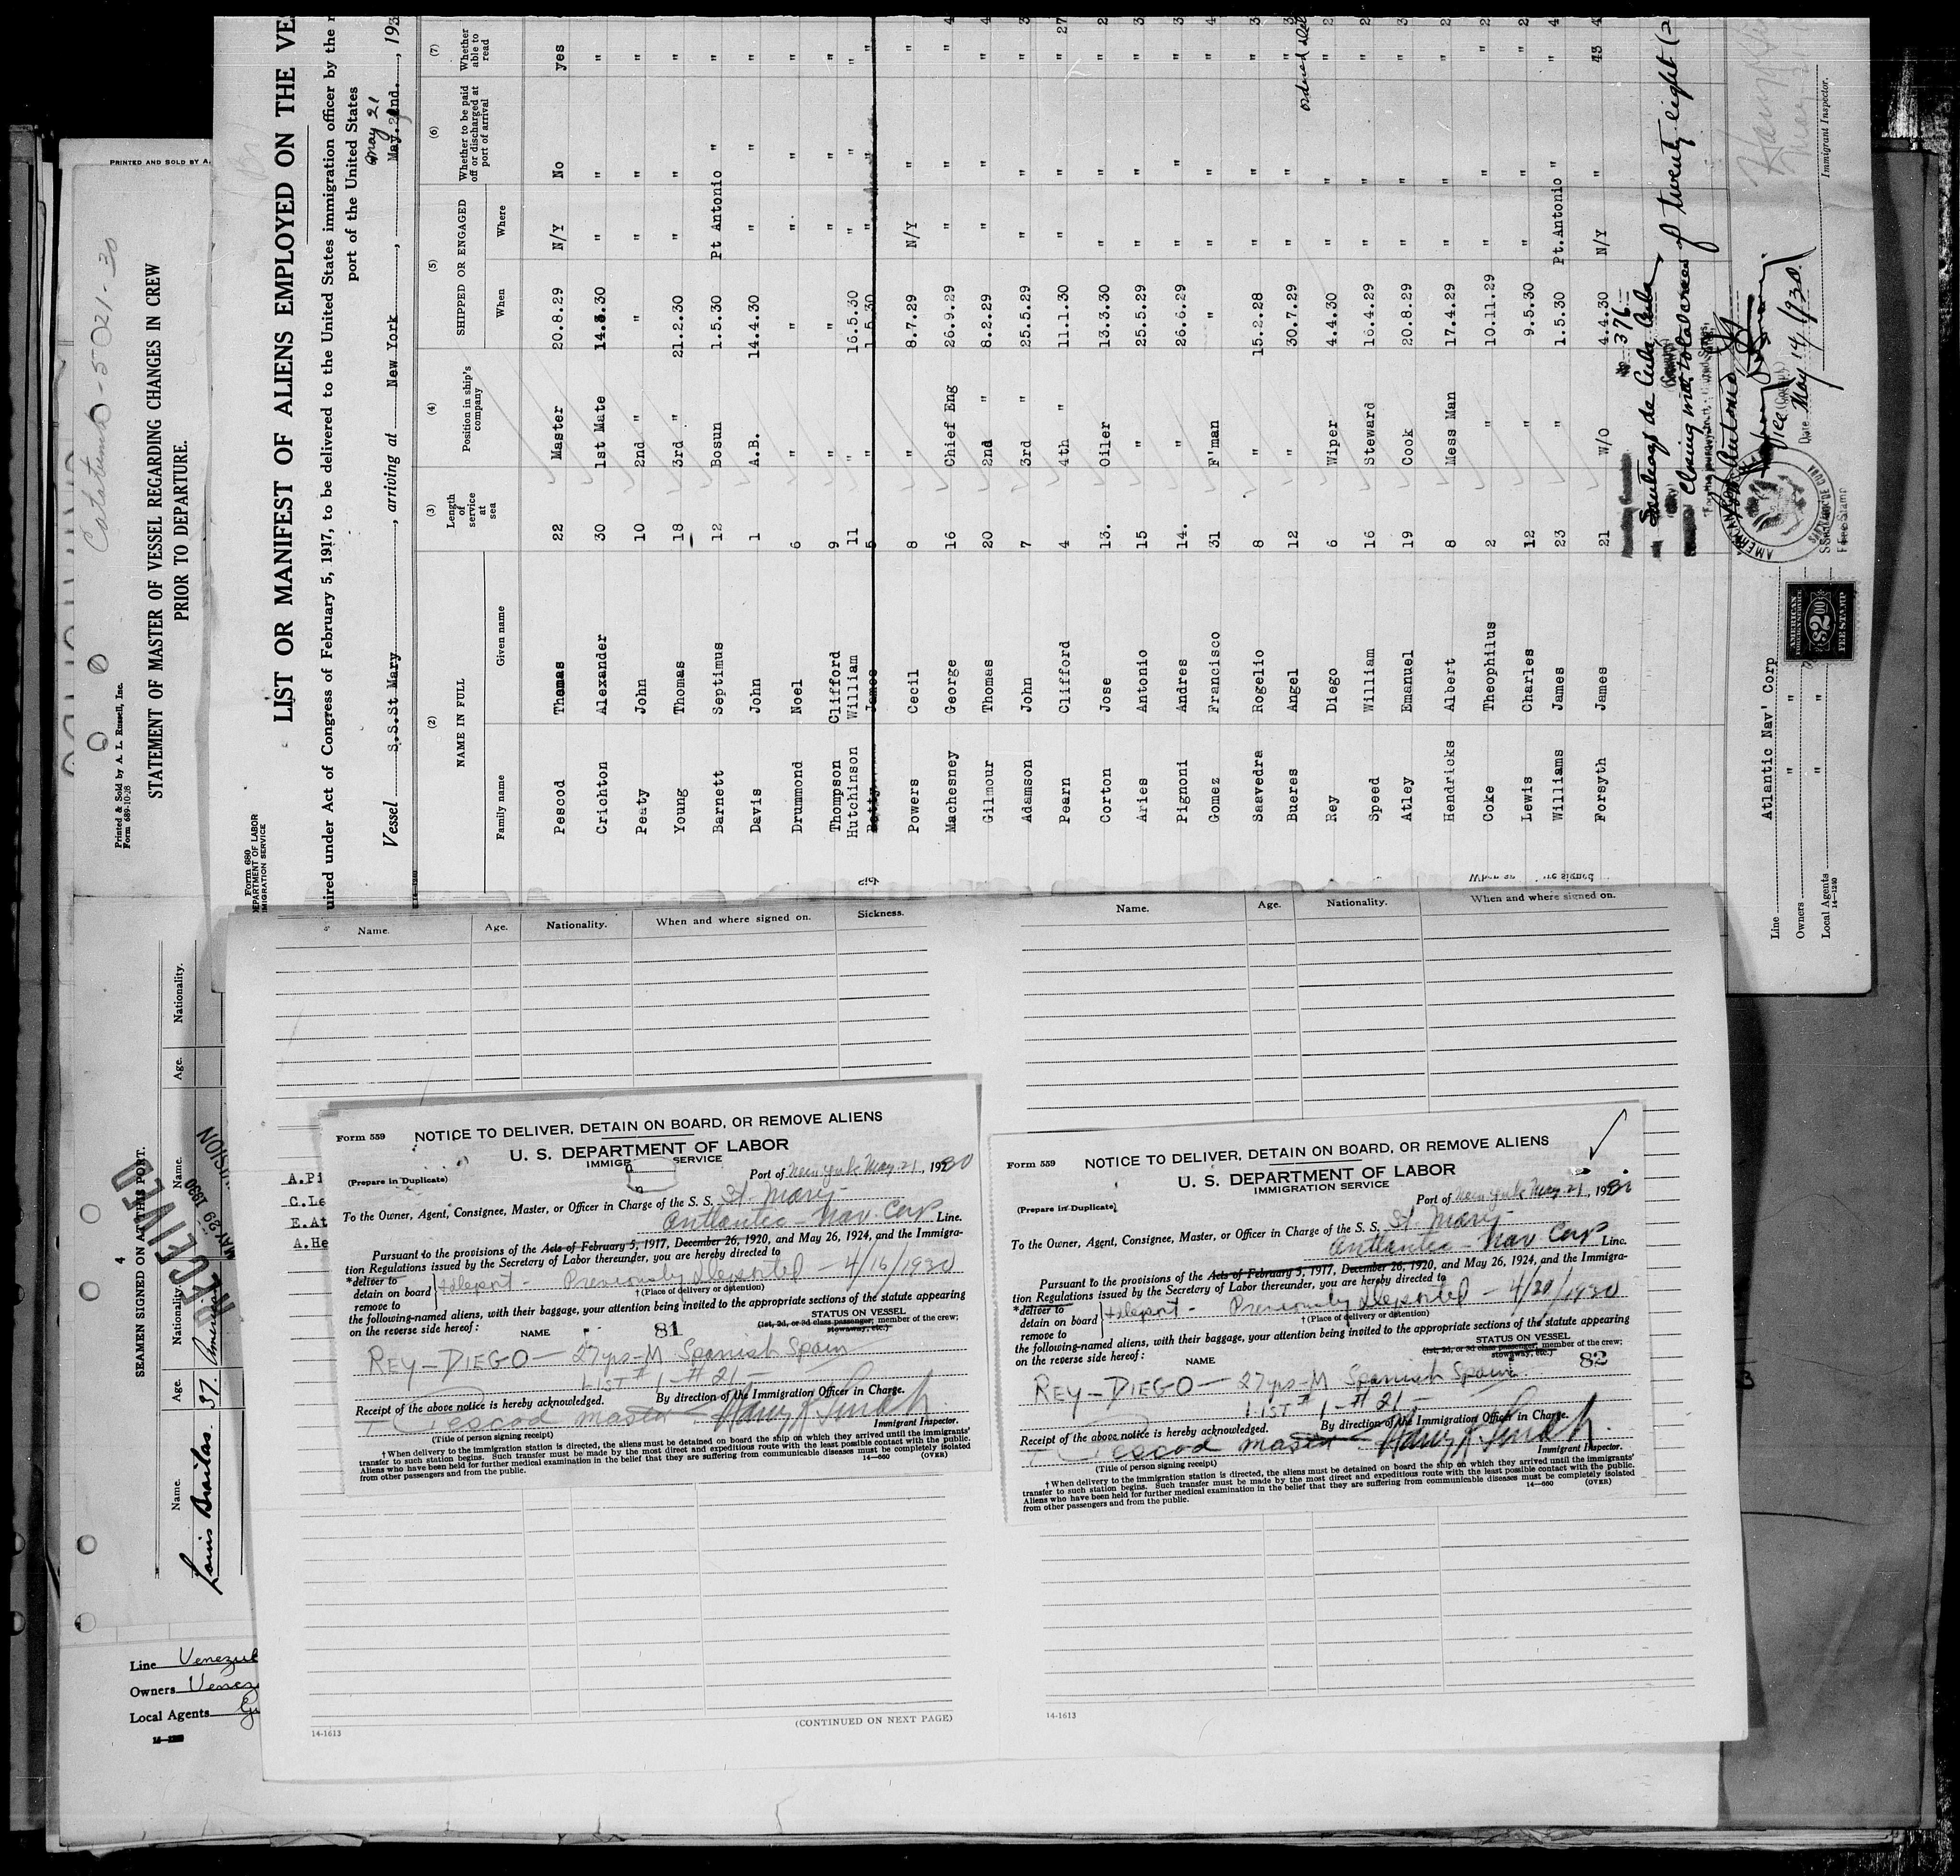 PRINTED AND SOLD BY A.
Catatumbo - 5-21-30
Printed & Sold by A. L. Russell, Inc.
Form 689-10-28
STATEMENT OF MASTER OF VESSEL REGARDING CHANGES IN CREW
PRIOR TO DEPARTURE.
4
SEAMEN SIGNED ON AT THIS PORT.
Name. Age. Nationality. Name. Age. Nationality.
Louis Brailas. 37. American
RECEIVED
MAY 29 1930
Line Venezuel
Owners Venez
Local Agents
Form 680
DEPARTMENT OF LABOR
IMMIGRATION SERVICE
LIST OR MANIFEST OF ALIENS EMPLOYED ON THE VE
uired under Act of Congress of February 5, 1917, to be delivered to the United States immigration officer by the r
port of the United States
May 21
Vessel S.S.St Mary, arriving at New York, May. 22nd., 193
(2) (3) (4) (5) (6) (7)
NAME IN FULL Length of service at sea Position in ship's company SHIPPED OR ENGAGED Whether to be paid off or discharged at port of arrival Whether able to read
Family name Given name When Where
Pescod Thomas 22 Master 20.8.29 N/Y No yes
Crichton Alexander 30 1st Mate 14.3.30 " " "
Peaty John 10 2nd " " " " "
Young Thomas 18 3rd " 21.2.30 " " "
Barnett Septimus 12 Bosun 1.5.30 Pt Antonio " "
Davis John 1 A.B. 14.4.30 " " "
Drummond Noel 6 " " " " "
Thompson Clifford 9 " " " " "
Hutchinson William 11 " 16.5.30 " " "
James 5 " 1.5.30 " " "
Powers Cecil 8 " 8.7.29 N/Y " "
Machesney George 16 Chief Eng 26.9.29 " " " 4
Gilmour Thomas 20 2nd " 8.2.29 " " " 4
Adamson John 7 3rd " 25.5.29 " " " 3
Pearn Clifford 4 4th " 11.1.30 " " " 27
Corton Jose 13. Oiler 13.3.30 " " " 2
Aries Antonio 15 " 25.5.29 " " " 3
Pignoni Andres 14. " 26.6.29 " " " 3
Gomez Francisco 31 F'man " " " " 4
Saavedra Rogelio 8 " 15.2.28 " " " 3
Bueres Angel 12 " 30.7.29 " " " 3
Rey Diego 6 Wiper 4.4.30 " " " 2
ordered
Speed William 16 Steward 16.4.29 " " " 2
Atley Emanuel 19 Cook 20.8.29 " " " 3
Hendricks Albert 8 Mess Man 17.4.29 " " " 2
Coke Theophilus 2 " 10.11.29 " " " 2
Lewis Charles 12 " 9.5.30 " " " 2
Williams James 23 " 1.5.30 Pt.Antonio " " 4
Forsyth James 21 W/O 4.4.30 N/Y " 43 4
376
Santiago de Cuba, Cuba
Closing with total crew of twenty eight (2
Date May 14/1930.
AMERICAN
SANTIAGO DE CUBA
Fee Stamp
AMERICAN FOREIGN SERVICE
$2.00
FEE STAMP
Immigrant Inspector.
Line Atlantic Nav' Corp
Owners " "
Local Agents " "
14-1240
Name. Age. Nationality. When and where signed on. Sickness.
Name. Age. Nationality. When and where signed on.
A.Pi
C.Le
E.At
A.He
Form 559 NOTICE TO DELIVER, DETAIN ON BOARD, OR REMOVE ALIENS
U. S. DEPARTMENT OF LABOR
IMMIGR SERVICE
(Prepare in Duplicate)
Port of New York May 21, 1930
To the Owner, Agent, Consignee, Master, or Officer in Charge of the S. S. St. Mary
Antlantic - Nav. Corp Line.
Pursuant to the provisions of the Acts of February 5, 1917, December 26, 1920, and May 26, 1924, and the Immigra-
tion Regulations issued by the Secretary of Labor thereunder, you are hereby directed to
*deliver to
detain on board
remove to
+deport - Previously deported - 4/16/1930
† (Place of delivery or detention)
the following-named aliens, with their baggage, your attention being invited to the appropriate sections of the statute appearing
on the reverse side hereof:
STATUS ON VESSEL
(1st, 2d, or 3d class passenger, member of the crew;
stowaway, etc.)
NAME 81
REY-DIEGO - 27 yrs-M Spanish Spain
LIST # 1 - # 21 -
Receipt of the above notice is hereby acknowledged. By direction of the Immigration Officer in Charge.
T Pescod master Harry R Smith
(Title of person signing receipt) Immigrant Inspector.
† When delivery to the immigration station is directed, the aliens must be detained on board the ship on which they arrived until the immigrants'
transfer to such station begins. Such transfer must be made by the most direct and expeditious route with the least possible contact with the public.
Aliens who have been held for further medical examination in the belief that they are suffering from communicable diseases must be completely isolated
from other passengers and from the public. 14—660 (OVER)
Form 559 NOTICE TO DELIVER, DETAIN ON BOARD, OR REMOVE ALIENS
U. S. DEPARTMENT OF LABOR
IMMIGRATION SERVICE
(Prepare in Duplicate)
Port of New York May 21, 1930
To the Owner, Agent, Consignee, Master, or Officer in Charge of the S. S. St. Mary
Antlantic - Nav. Corp Line.
Pursuant to the provisions of the Acts of February 5, 1917, December 26, 1920, and May 26, 1924, and the Immigra-
tion Regulations issued by the Secretary of Labor thereunder, you are hereby directed to
*deliver to
detain on board
remove to
+deport - Previously deported - 4/20/1930
† (Place of delivery or detention)
the following-named aliens, with their baggage, your attention being invited to the appropriate sections of the statute appearing
on the reverse side hereof:
STATUS ON VESSEL
(1st, 2d, or 3d class passenger, member of the crew;
stowaway, etc.)
NAME 82
REY-DIEGO - 27 yrs-M Spanish Spain
LIST # 1 - # 21 -
Receipt of the above notice is hereby acknowledged. By direction of the Immigration Officer in Charge.
T Pescod master Harry R Smith
(Title of person signing receipt) Immigrant Inspector.
† When delivery to the immigration station is directed, the aliens must be detained on board the ship on which they arrived until the immigrants'
transfer to such station begins. Such transfer must be made by the most direct and expeditious route with the least possible contact with the public.
Aliens who have been held for further medical examination in the belief that they are suffering from communicable diseases must be completely isolated
from other passengers and from the public. 14—660 (OVER)
14-1613 (CONTINUED ON NEXT PAGE)
14-1613